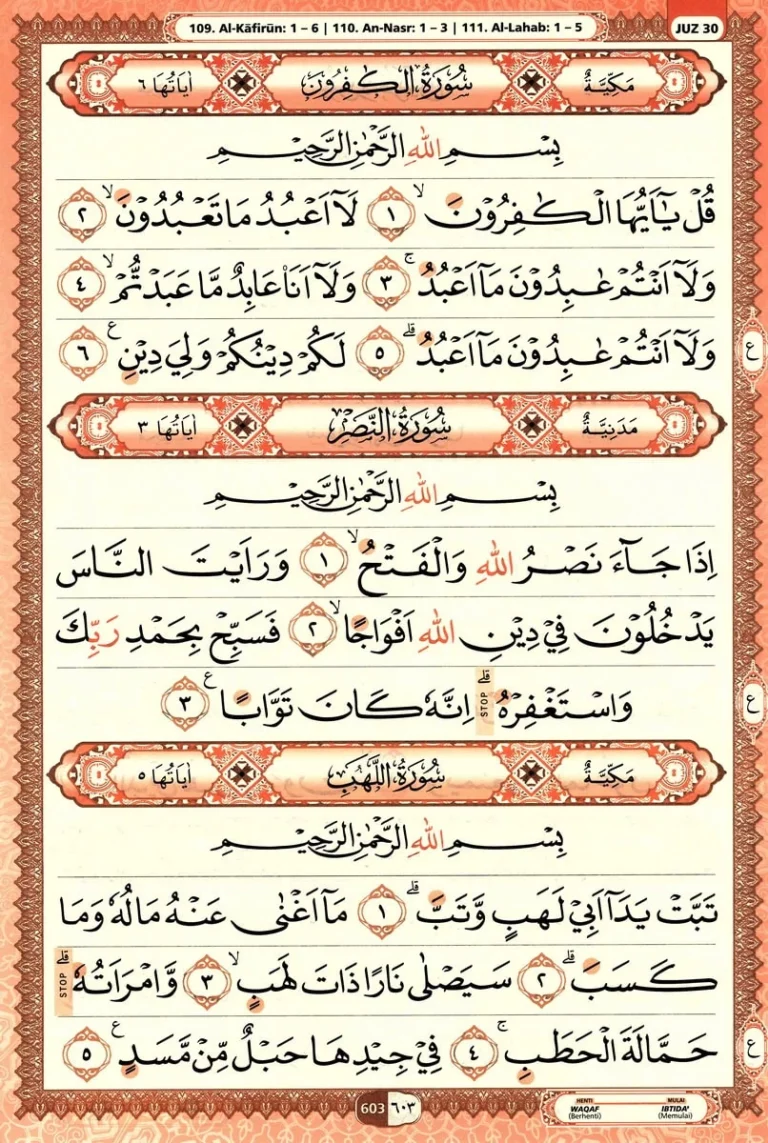 109. Al-Kāfirūn: 1 – 6 | 110. An-Nasr: 1 – 3 | 111. Al-Lahab: 1 – 5
JUZ 30
مَكِّيَّةٌ سُوْرَةُ الْكٰفِرُوْنَ اٰيَاتُهَا ٦
بِسْمِ اللهِ الرَّحْمٰنِ الرَّحِيْمِ
قُلْ يٰٓاَيُّهَا الْكٰفِرُوْنَۙ ١ لَآ اَعْبُدُ مَا تَعْبُدُوْنَۙ ٢
وَلَآ اَنْتُمْ عٰبِدُوْنَ مَآ اَعْبُدُۚ ٣ وَلَآ اَنَا۠ عَابِدٌ مَّا عَبَدْتُّمْۙ ٤
وَلَآ اَنْتُمْ عٰبِدُوْنَ مَآ اَعْبُدُۗ ٥ لَكُمْ دِيْنُكُمْ وَلِيَ دِيْنِ ࣖ ٦
ع
مَدَنِيَّةٌ سُوْرَةُ النَّصْرِ اٰيَاتُهَا ٣
بِسْمِ اللهِ الرَّحْمٰنِ الرَّحِيْمِ
اِذَا جَاۤءَ نَصْرُ اللهِ وَالْفَتْحُۙ ١ وَرَاَيْتَ النَّاسَ
يَدْخُلُوْنَ فِيْ دِيْنِ اللهِ اَفْوَاجًاۙ ٢ فَسَبِّحْ بِحَمْدِ رَبِّكَ
وَاسْتَغْفِرْهُۗ STOP اِنَّهٗ كَانَ تَوَّابًا ࣖ ٣
ع
مَكِّيَّةٌ سُوْرَةُ اللَّهَبِ اٰيَاتُهَا ٥
بِسْمِ اللهِ الرَّحْمٰنِ الرَّحِيْمِ
تَبَّتْ يَدَآ اَبِيْ لَهَبٍ وَّتَبَّۗ ١ مَآ اَغْنٰى عَنْهُ مَالُهٗ وَمَا
كَسَبَۗ ٢ سَيَصْلٰى نَارًا ذَاتَ لَهَبٍۙ ٣ وَّامْرَاَتُهٗۗ STOP
حَمَّالَةَ الْحَطَبِۚ ٤ فِيْ جِيْدِهَا حَبْلٌ مِّنْ مَّسَدٍ ࣖ ٥
ع
603 ٦٠٣
HENTI WAQAF (Berhenti)
MULAI IBTIDA' (Memulai)